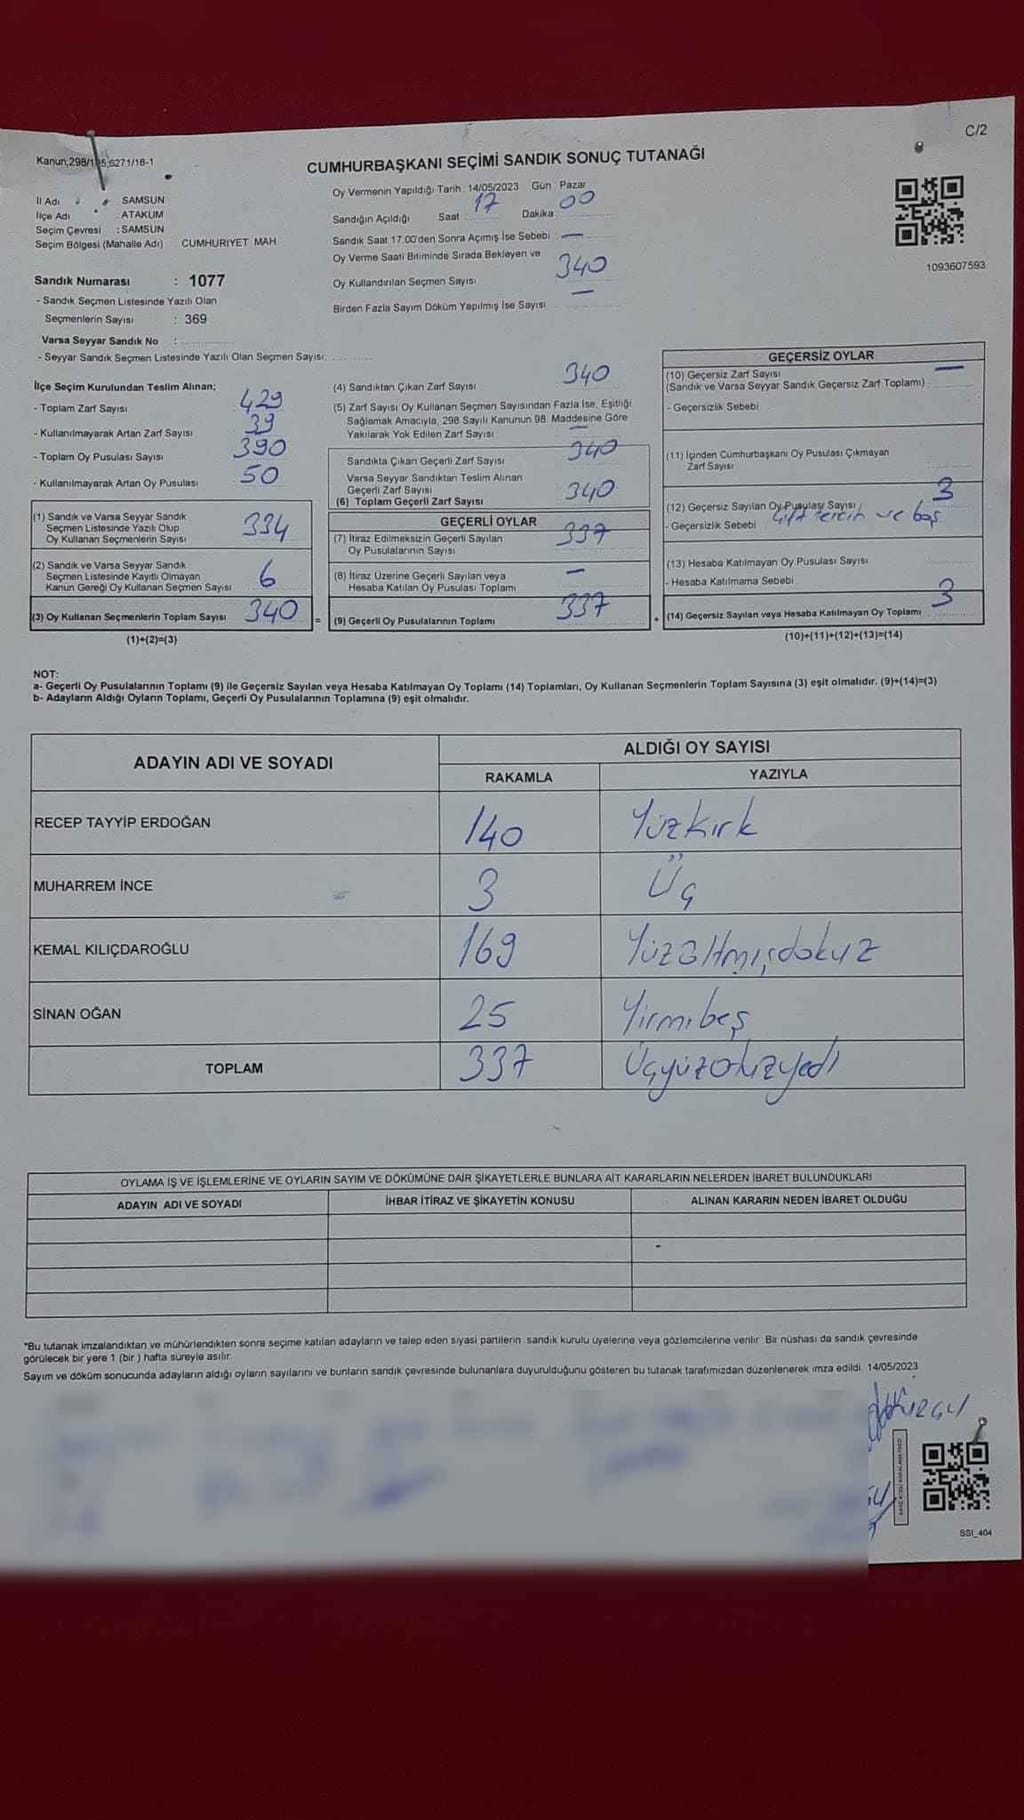 C/2
Kanun,298/105,6271/18-1
CUMHURBAŞKANI SEÇİMİ SANDIK SONUÇ TUTANAĞI
İl Adı : SAMSUN
İlçe Adı : ATAKUM
Seçim Çevresi : SAMSUN
Seçim Bölgesi (Mahalle Adı) CUMHURIYET MAH
Sandık Numarası : 1077
- Sandık Seçmen Listesinde Yazılı Olan
Seçmenlerin Sayısı : 369
Varsa Seyyar Sandık No :
- Seyyar Sandık Seçmen Listesinde Yazılı Olan Seçmen Sayısı:
Oy Vermenin Yapıldığı Tarih : 14/05/2023 Gün : Pazar
Sandığın Açıldığı Saat : 17 Dakika : 00
Sandık Saat 17.00'den Sonra Açımış İse Sebebi : —
Oy Verme Saati Bitiminde Sırada Bekleyen ve
Oy Kullandırılan Seçmen Sayısı 340
Birden Fazla Sayım Döküm Yapılmış İse Sayısı —
1093607593
İlçe Seçim Kurulundan Teslim Alınan;
- Toplam Zarf Sayısı 429
- Kullanılmayarak Artan Zarf Sayısı 39
- Toplam Oy Pusulası Sayısı 390
- Kullanılmayarak Artan Oy Pusulası 50
(1) Sandık ve Varsa Seyyar Sandık
Seçmen Listesinde Yazılı Olup
Oy Kullanan Seçmenlerin Sayısı 334
(2) Sandık ve Varsa Seyyar Sandık
Seçmen Listesinde Kayıtlı Olmayan
Kanun Gereği Oy Kullanan Seçmen Sayısı 6
(3) Oy Kullanan Seçmenlerin Toplam Sayısı 340 =
(1)+(2)=(3)
(4) Sandıktan Çıkan Zarf Sayısı 340
(5) Zarf Sayısı Oy Kullanan Seçmen Sayısından Fazla İse, Eşitliği
Sağlamak Amacıyla, 298 Sayılı Kanunun 98. Maddesine Göre
Yakılarak Yok Edilen Zarf Sayısı —
Sandıkta Çıkan Geçerli Zarf Sayısı 340
Varsa Seyyar Sandıktan Teslim Alınan
Geçerli Zarf Sayısı
(6) Toplam Geçerli Zarf Sayısı 340
GEÇERLİ OYLAR
(7) İtiraz Edilmeksizin Geçerli Sayılan
Oy Pusulalarının Sayısı 337
(8) İtiraz Üzerine Geçerli Sayılan veya
Hesaba Katılan Oy Pusulası Toplamı —
(9) Geçerli Oy Pusulalarının Toplamı 337 +
GEÇERSİZ OYLAR
(10) Geçersiz Zarf Sayısı —
(Sandık ve Varsa Seyyar Sandık Geçersiz Zarf Toplamı)
- Geçersizlik Sebebi
(11) İçinden Cumhurbaşkanı Oy Pusulası Çıkmayan
Zarf Sayısı
(12) Geçersiz Sayılan Oy Pusulası Sayısı 3
- Geçersizlik Sebebi Çift tercih ve boş
(13) Hesaba Katılmayan Oy Pusulası Sayısı
- Hesaba Katılmama Sebebi
(14) Geçersiz Sayılan veya Hesaba Katılmayan Oy Toplamı 3
(10)+(11)+(12)+(13)=(14)
NOT:
a- Geçerli Oy Pusulalarının Toplamı (9) ile Geçersiz Sayılan veya Hesaba Katılmayan Oy Toplamı (14) Toplamları, Oy Kullanan Seçmenlerin Toplam Sayısına (3) eşit olmalıdır. (9)+(14)=(3)
b- Adayların Aldığı Oyların Toplamı, Geçerli Oy Pusulalarının Toplamına (9) eşit olmalıdır.
ADAYIN ADI VE SOYADI
ALDIĞI OY SAYISI
RAKAMLA YAZIYLA
RECEP TAYYİP ERDOĞAN 140 Yüzkırk
MUHARREM İNCE 3 Üç
KEMAL KILIÇDAROĞLU 169 Yüzaltmışdokuz
SİNAN OĞAN 25 Yirmibeş
TOPLAM 337 Üçyüzotuzyedi
OYLAMA İŞ VE İŞLEMLERİNE VE OYLARIN SAYIM VE DÖKÜMÜNE DAİR ŞİKAYETLERLE BUNLARA AİT KARARLARIN NELERDEN İBARET BULUNDUKLARI
ADAYIN ADI VE SOYADI İHBAR İTİRAZ VE ŞİKAYETİN KONUSU ALINAN KARARIN NEDEN İBARET OLDUĞU
*Bu tutanak imzalandıktan ve mühürlendikten sonra seçime katılan adayların ve talep eden siyasi partilerin sandık kurulu üyelerine veya gözlemcilerine verilir. Bir nüshası da sandık çevresinde
görülecek bir yere 1 (bir ) hafta süreyle asılır.
Sayım ve döküm sonucunda adayların aldığı oyların sayılarını ve bunların sandık çevresinde bulunanlara duyurulduğunu gösteren bu tutanak tarafımızdan düzenlenerek imza edildi. 14/05/2023
SSI_404